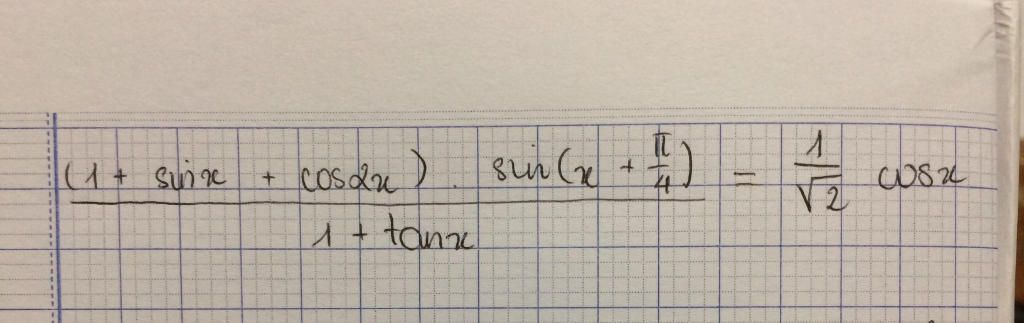 (1 + sinx + cos2x) . sin(x + π/4) / 1 + tanx = 1/√2 cosx